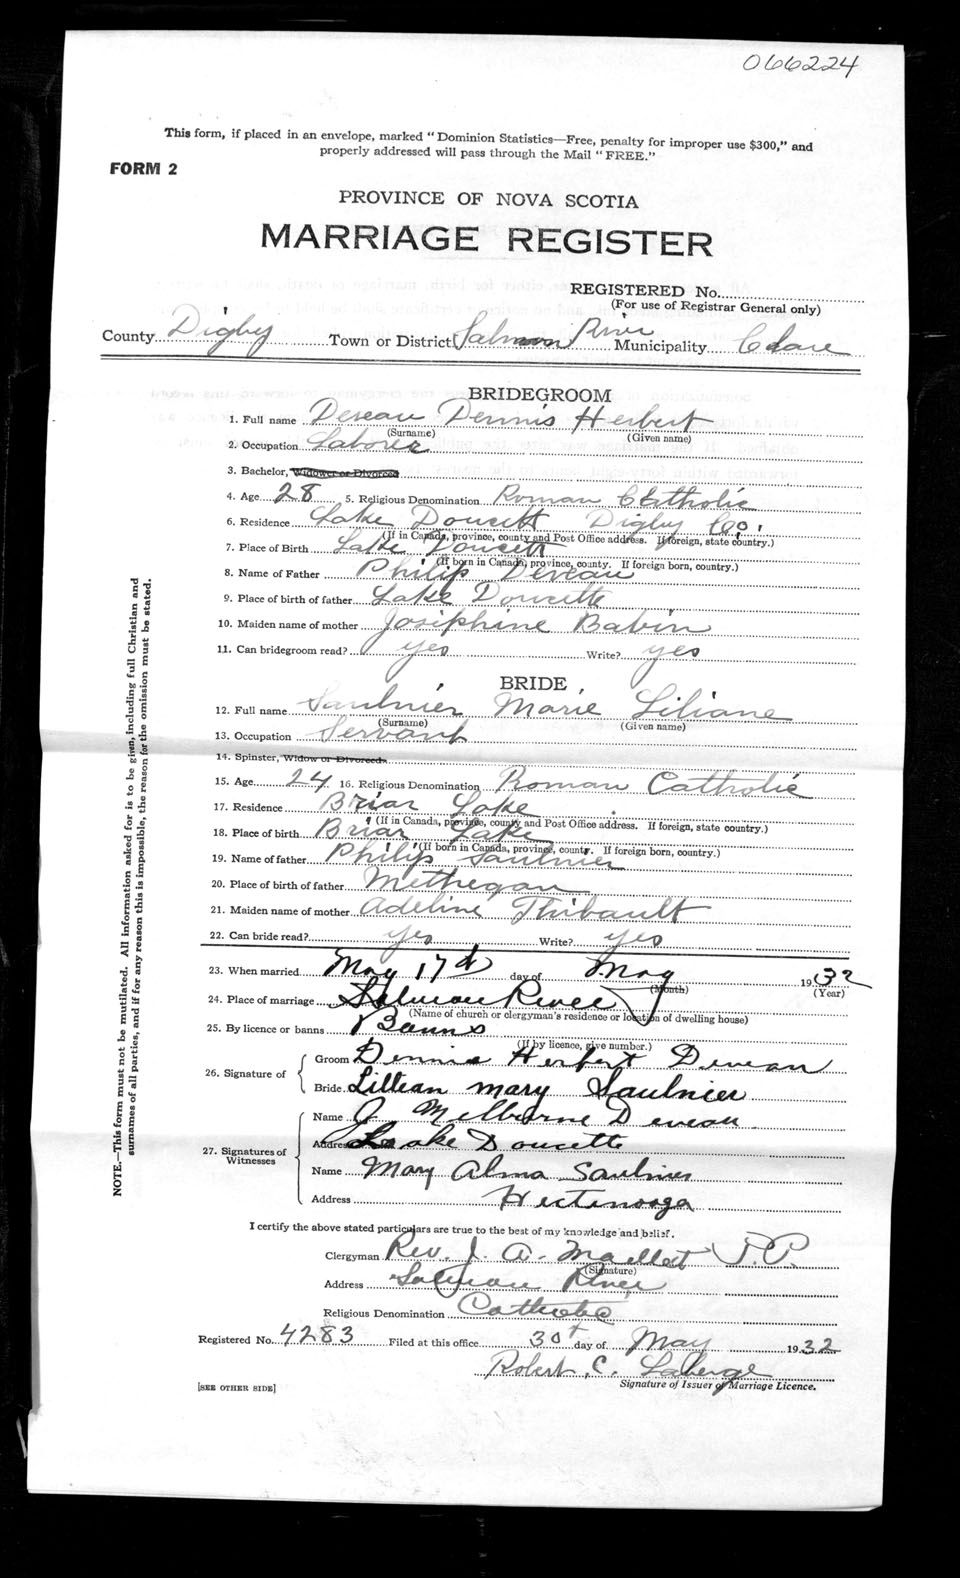 066224
This form, if placed in an envelope, marked "Dominion Statistics—Free, penalty for improper use $300," and
properly addressed will pass through the Mail "FREE."
FORM 2
PROVINCE OF NOVA SCOTIA
MARRIAGE REGISTER
REGISTERED No.
(For use of Registrar General only)
County Digby Town or District Salmon River Municipality Clare
BRIDEGROOM
1. Full name Deveau Dennis Herbert
(Surname) (Given name)
2. Occupation Laborer
3. Bachelor, Widower or Divorced
4. Age 28 5. Religious Denomination Roman Catholic
6. Residence Lake Doucett Digby Co.
(If in Canada, province, county and Post Office address. If foreign, state country.)
7. Place of Birth Lake Doucett
(If born in Canada, province, county. If foreign born, country.)
8. Name of Father Philip Deveau
9. Place of birth of father Lake Doucette
10. Maiden name of mother Josiphine Babin
11. Can bridegroom read? yes Write? yes
BRIDE
12. Full name Saulnier Marie Liliane
(Surname) (Given name)
13. Occupation Servant
14. Spinster, Widow or Divorced
15. Age 24 16. Religious Denomination Roman Catholic
17. Residence Briar Lake
(If in Canada, province, county and Post Office address. If foreign, state country.)
18. Place of birth Briar Lake
(If born in Canada, province, county. If foreign born, country.)
19. Name of father Philip Saulnier
20. Place of birth of father Methegan
21. Maiden name of mother Adeline Thibault
22. Can bride read? yes Write? yes
23. When married May 17th day of May 1932
(Month) (Year)
24. Place of marriage Salmon River
(Name of church or clergyman's residence or location of dwelling house)
25. By licence or banns Banns
(If by licence, give number.)
26. Signature of
Groom Dennis Herbert Deveau
Bride Lillian mary Saulnier
27. Signatures of Witnesses
Name J Melborne Deveau
Address Lake Doucette
Name Mary Alma Saulnier
Address Hectanooga
I certify the above stated particulars are true to the best of my knowledge and belief.
Clergyman Rev. J. A. Maillet P.P.
(Signature)
Address Salmon River
Religious Denomination Catholic
Registered No. 4283 Filed at this office 30th day of May 1932
Robert C. Laberge
Signature of Issuer of Marriage Licence.
[SEE OTHER SIDE]
NOTE.—This form must not be mutilated. All information asked for is to be given, including full Christian and
surnames of all parties, and if for any reason this is impossible, the reason for the omission must be stated.